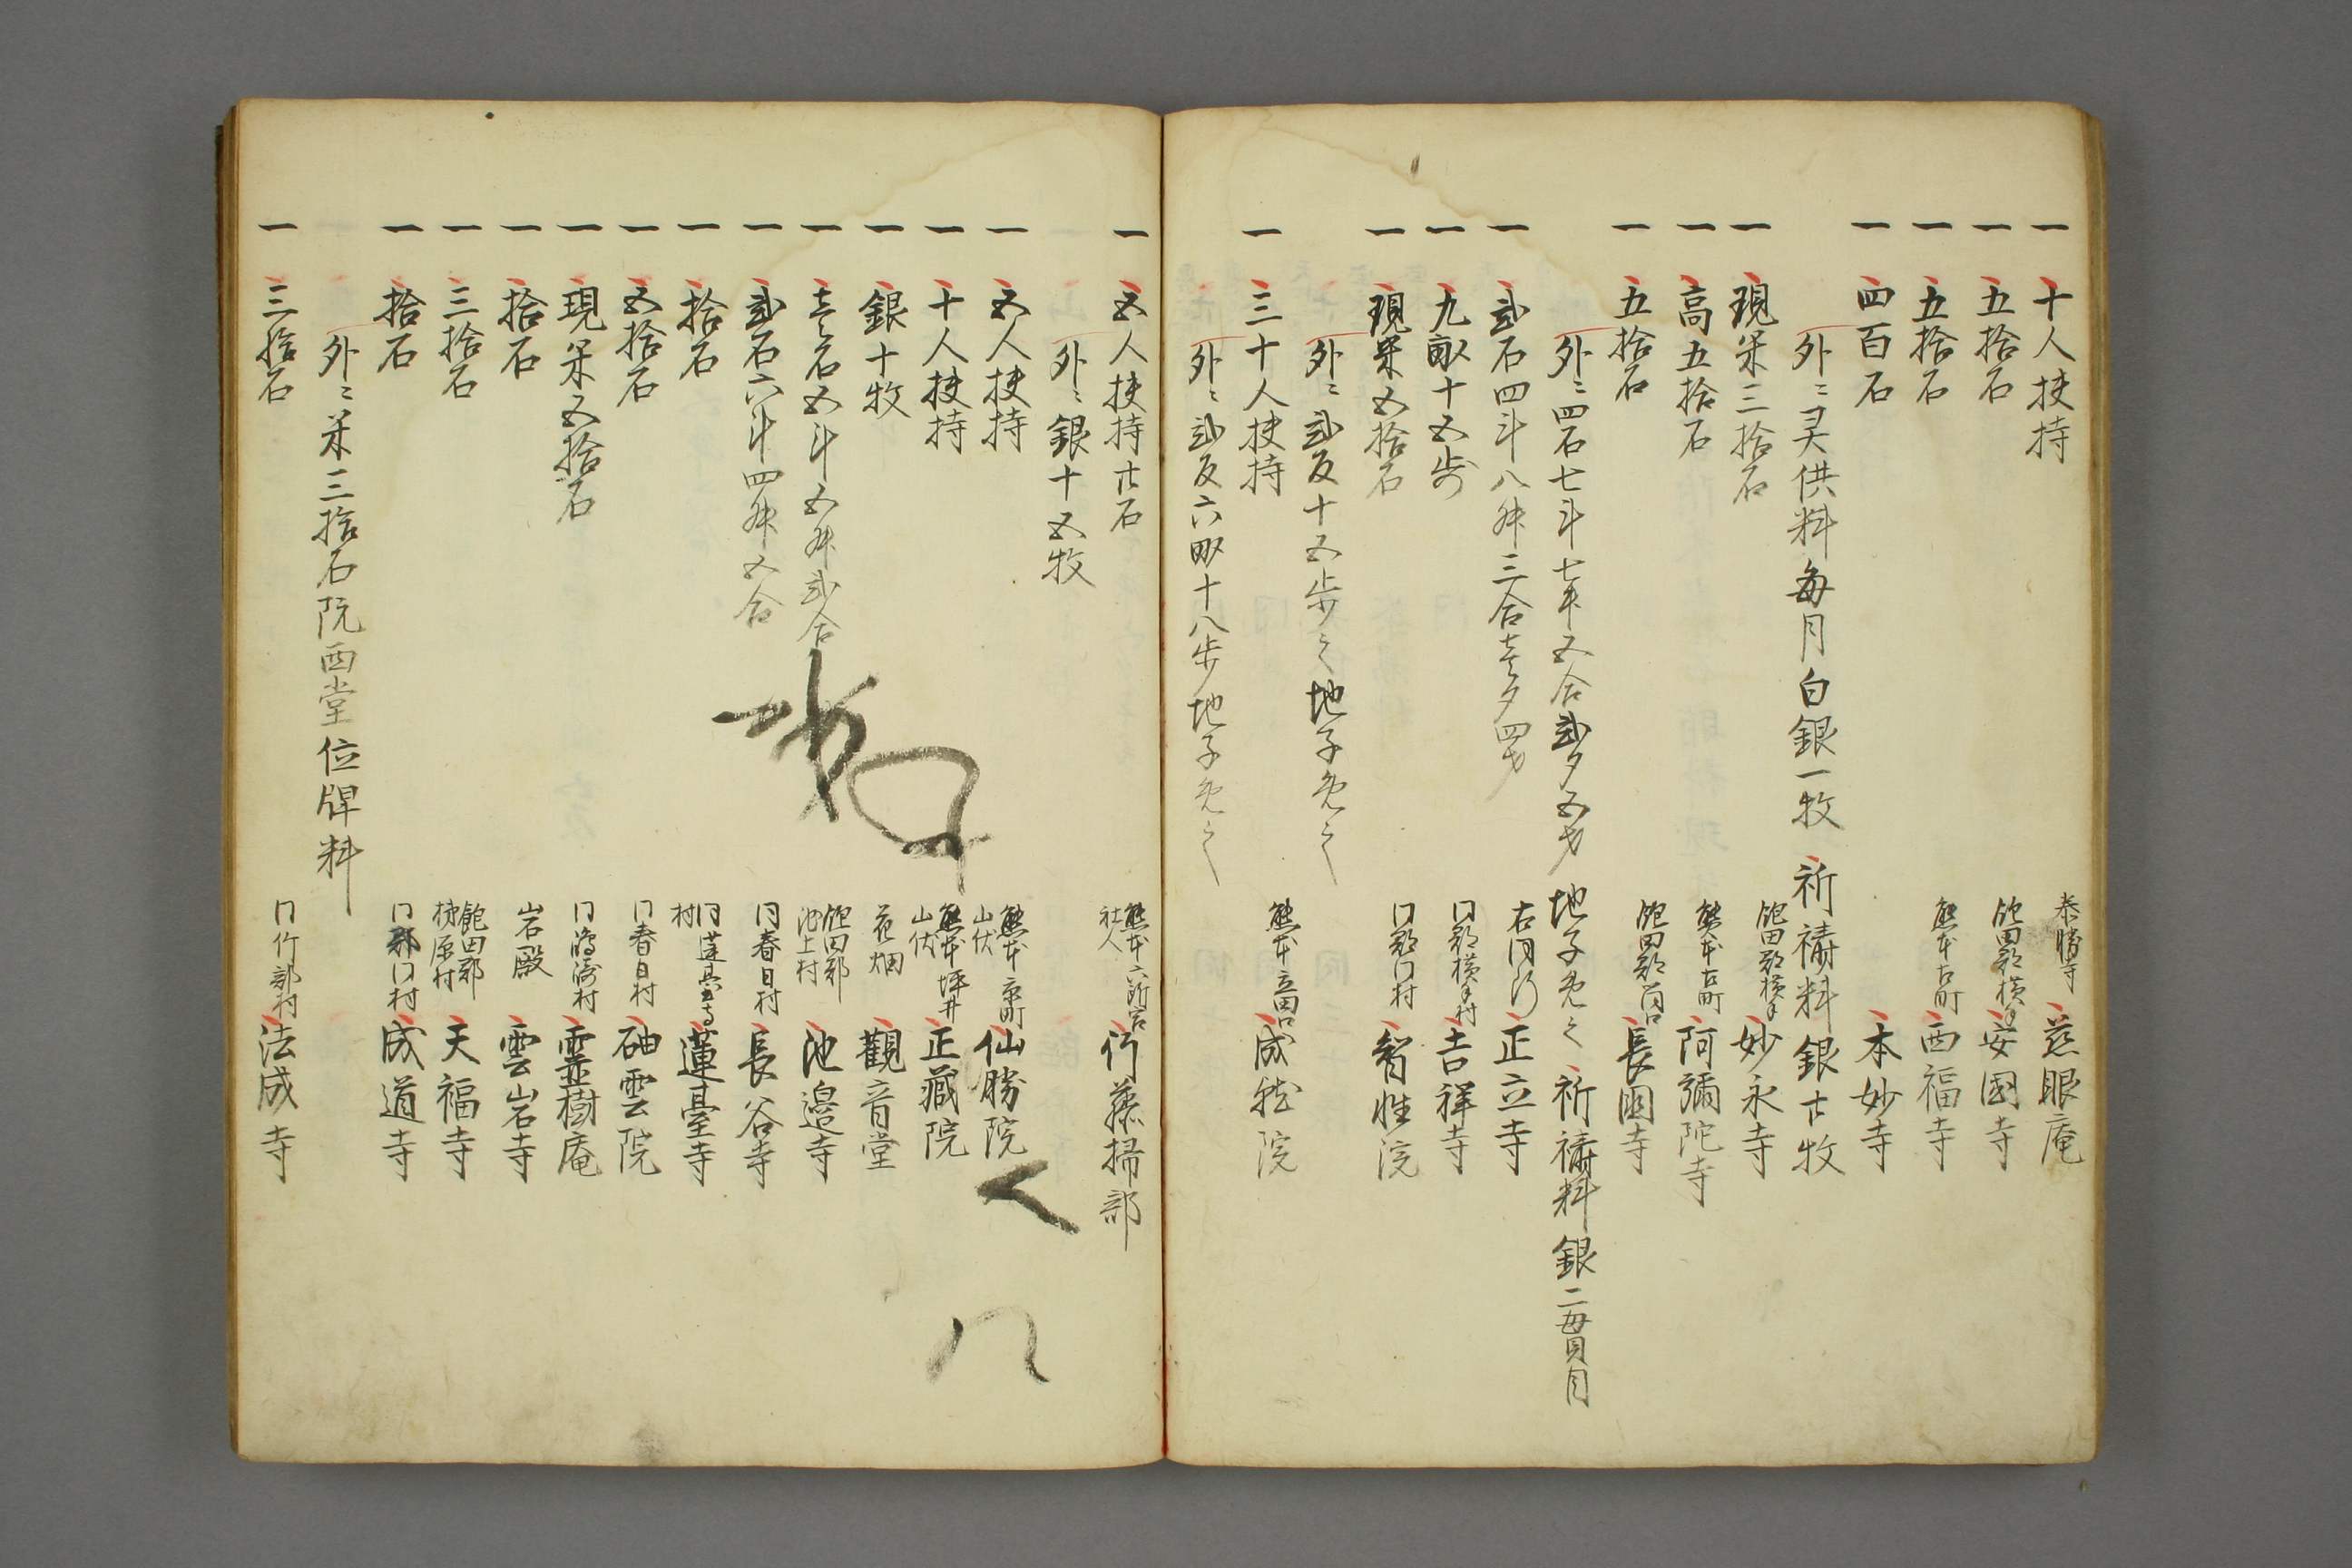 一 十人扶持 泰勝寺 慈眼庵
一 五拾石 飽田郡横手 安國寺
一 五拾石 熊本古町 西福寺
一 四百石 本妙寺
外ニ灵供料毎月白銀一枚 祈禱料銀廿枚
一 現米三拾石 飽田郡横手 妙永寺
一 高五拾石 熊本古町 阿彌陀寺
一 五拾石 飽田郡 長國寺
外ニ四石七斗七升五合弐夕五才 地子免之 祈禱料銀二貫目
一 弐石四斗八升三合壱夕四才 右同所 正立寺
一 九畝十五歩 同郡横手村 吉祥寺
一 現米五拾石 同郡同村 智性院
外ニ弐反十五歩之地子免之
一 三十人扶持 熊本立田口 成就院
外ニ弐反六畝十八歩地子免之
一 五人扶持廿石 熊本六所宮社人 行藤掃部
外ニ銀十五枚
一 五人扶持 熊本京町山伏 仙勝院
一 十人扶持 熊本坪井山伏 正藏院
一 銀十枚 花畑 觀音堂
一 壱石五斗五升弐合 飽田郡池上村 池邉寺
一 弐石六斗四升五合 同春日村 長谷寺
一 拾石 同蓮臺寺村 蓮臺寺
一 五拾石 同春日村 岫雲院
一 現米五拾石 同嶋崎村 靈樹庵
一 拾石 岩殿 雲岩寺
一 三拾石 飽田郡柿原村 天福寺
一 拾石 同郡同村 成道寺
外ニ米三拾石院西堂位牌料
一 三拾石 同竹部村 法成寺